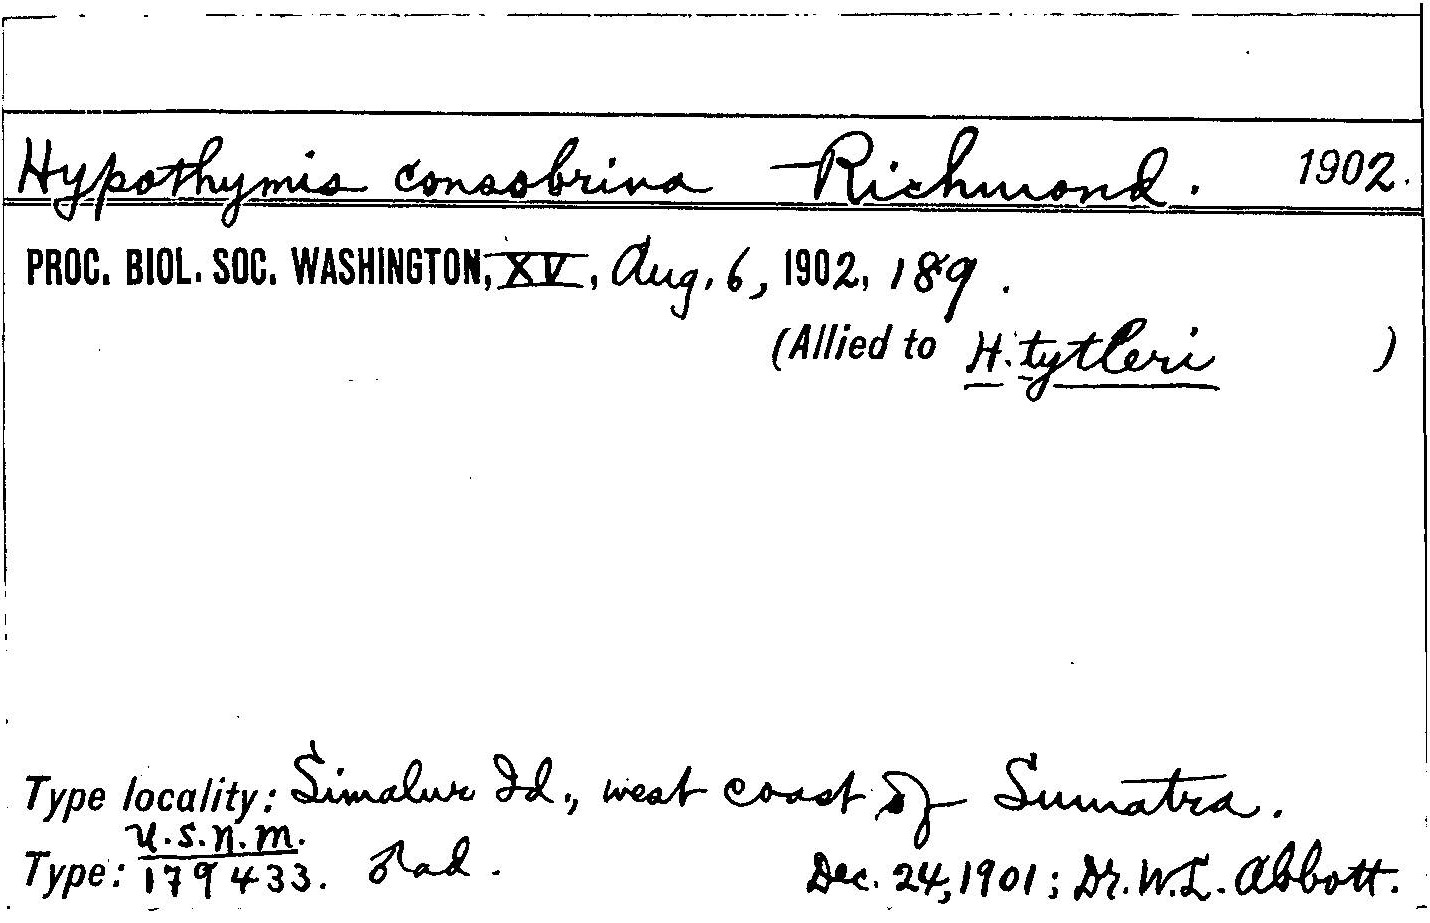 Hypothymis consobrina Richmond. 1902.
PROC. BIOL. SOC. WASHINGTON, XV, Aug. 6, 1902, 189.
(Allied to H. tytleri )
Type locality: Simalur Id., west coast of Sumatra.
U.S.N.M.
Type: 179433. ♂ad. Dec. 24, 1901; Dr. W. L. Abbott.